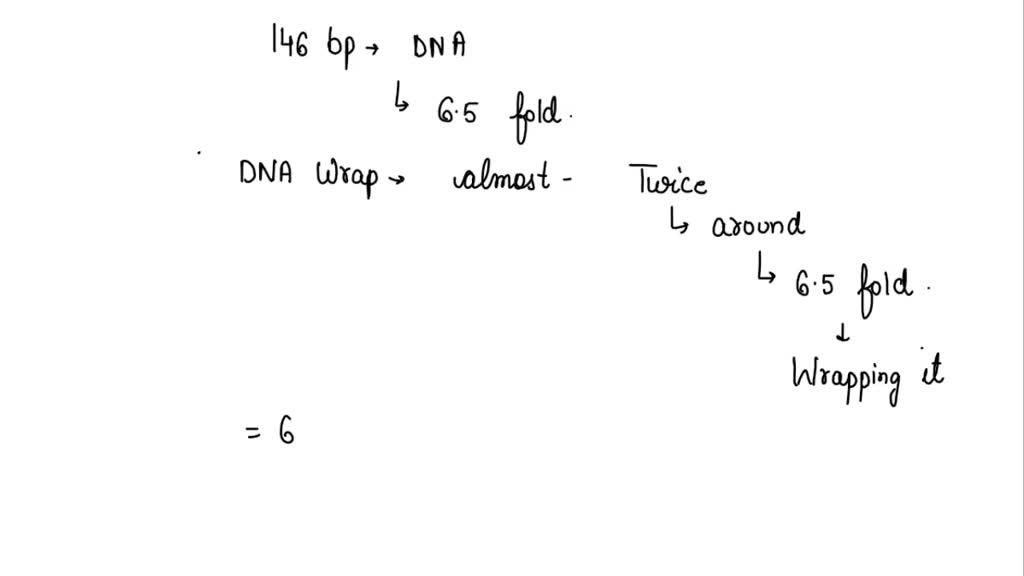 146 bp → DNA
↳ 6.5 fold.
DNA Wrap → almost - Twice
↳ around
↳ 6.5 fold.
↓
Wrapping it
= 6